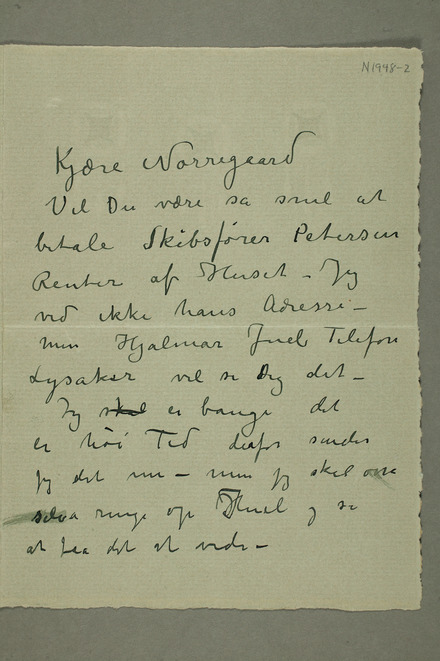 N1948-2
Kjære Nørregaard
Vil Du være sa snil at
betale Skibsfører Petersen
Renter af Huset – Jeg
ved ikke hans Adresse –
men Hjalmar Juel Telefon
Lysaker vil si Dig det –
Jeg skal er bange det
er höi Tid derfor sender
jeg det nu – men jeg skal
selv ringe op Juel og se
at faa det at vide –